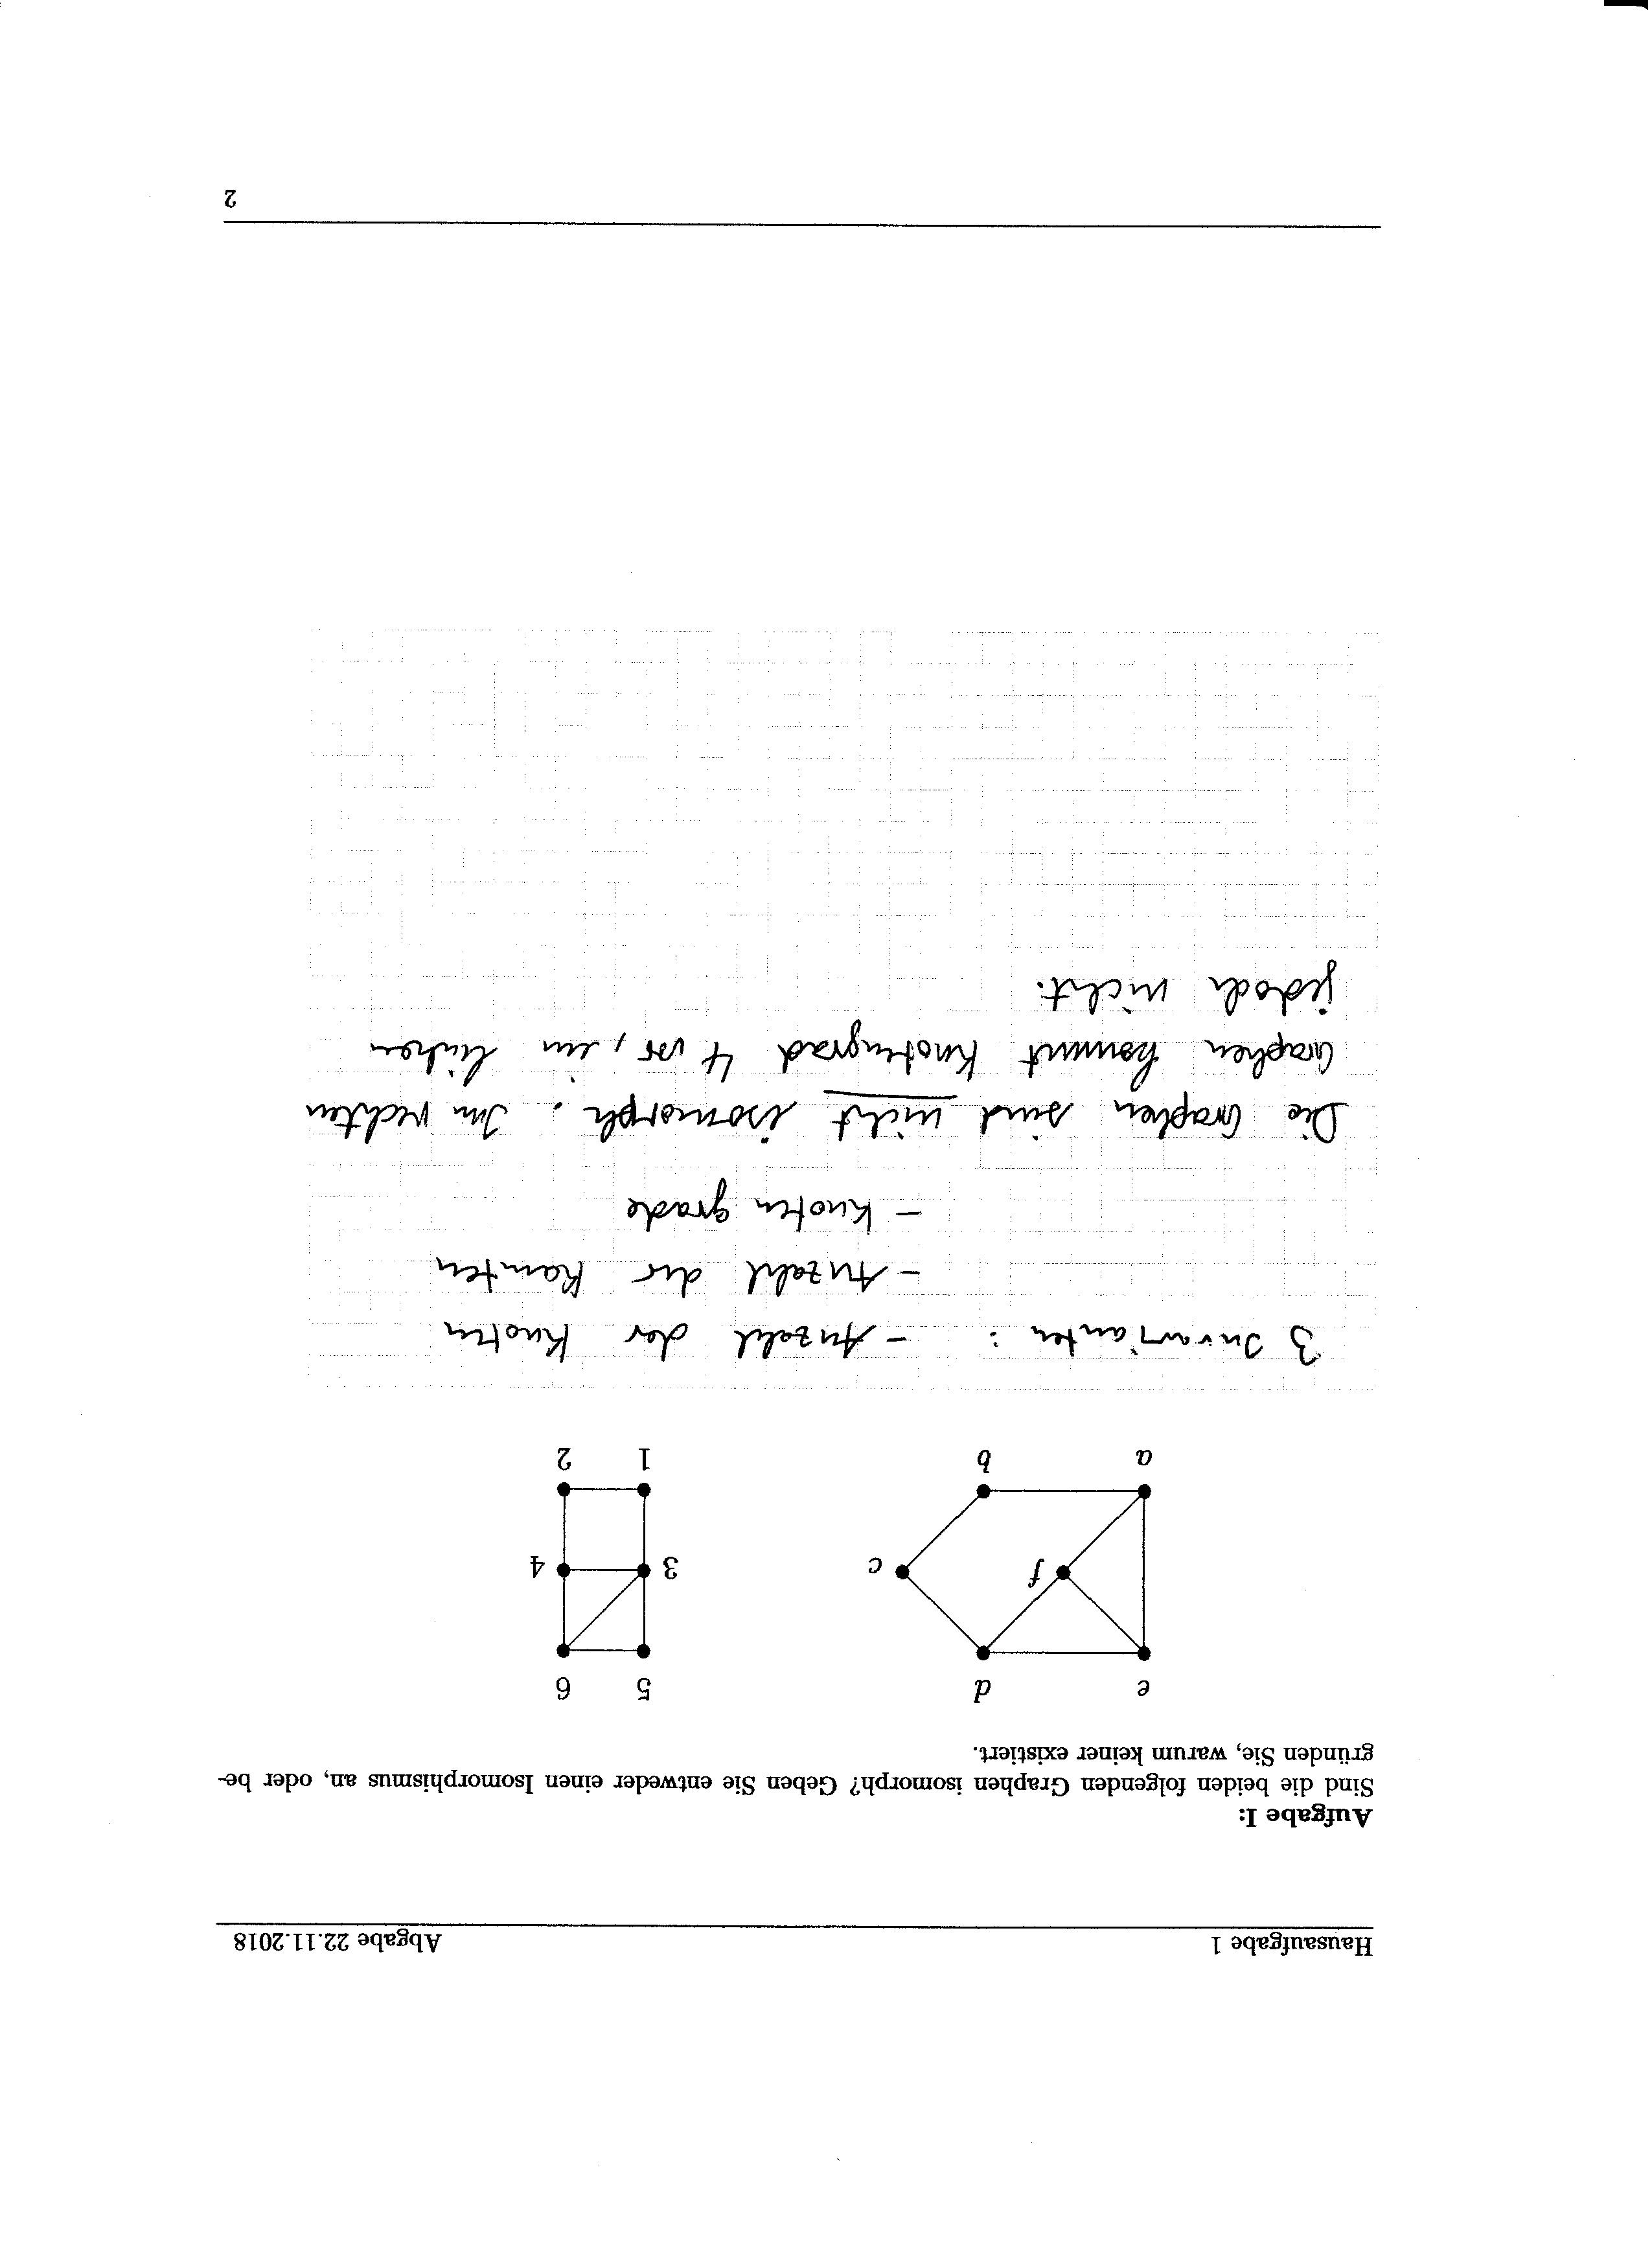 Hausaufgabe 1 Abgabe 22.11.2018
Aufgabe I:
Sind die beiden folgenden Graphen isomorph? Geben Sie entweder einen Isomorphismus an, oder be-
gründen Sie, warum keiner existiert.
e d 5 6
f c 3 4
a b 1 2
3 Invarianten: - Anzahl der Knoten
- Anzahl der Kanten
- Knotengrade
Die Graphen sind nicht isomorph. Im rechten
Graphen kommt Knotengrad 4 vor, im linken
jedoch nicht.
2